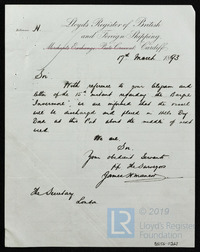 H
Lloyd's Register of British
and Foreign Shipping
Merchants Exchange, Cardiff
17th March 1893
Sir
With reference to your telegram and
letter of the 15th instant regarding the Barque
"Inverurie", we are informed that the vessel
will be discharged and placed in
Dock at this Port about the middle of next
week
We are,
Sir
Your obedient Servants
pp the Surveyors
James
The Secretary
London
Lloyd's Register
Foundation